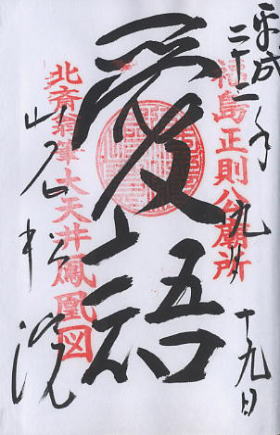 平成二十二年九月十九日
福島正則公廟所
愛語
北斎翁筆大天井鳳凰図
岩松院